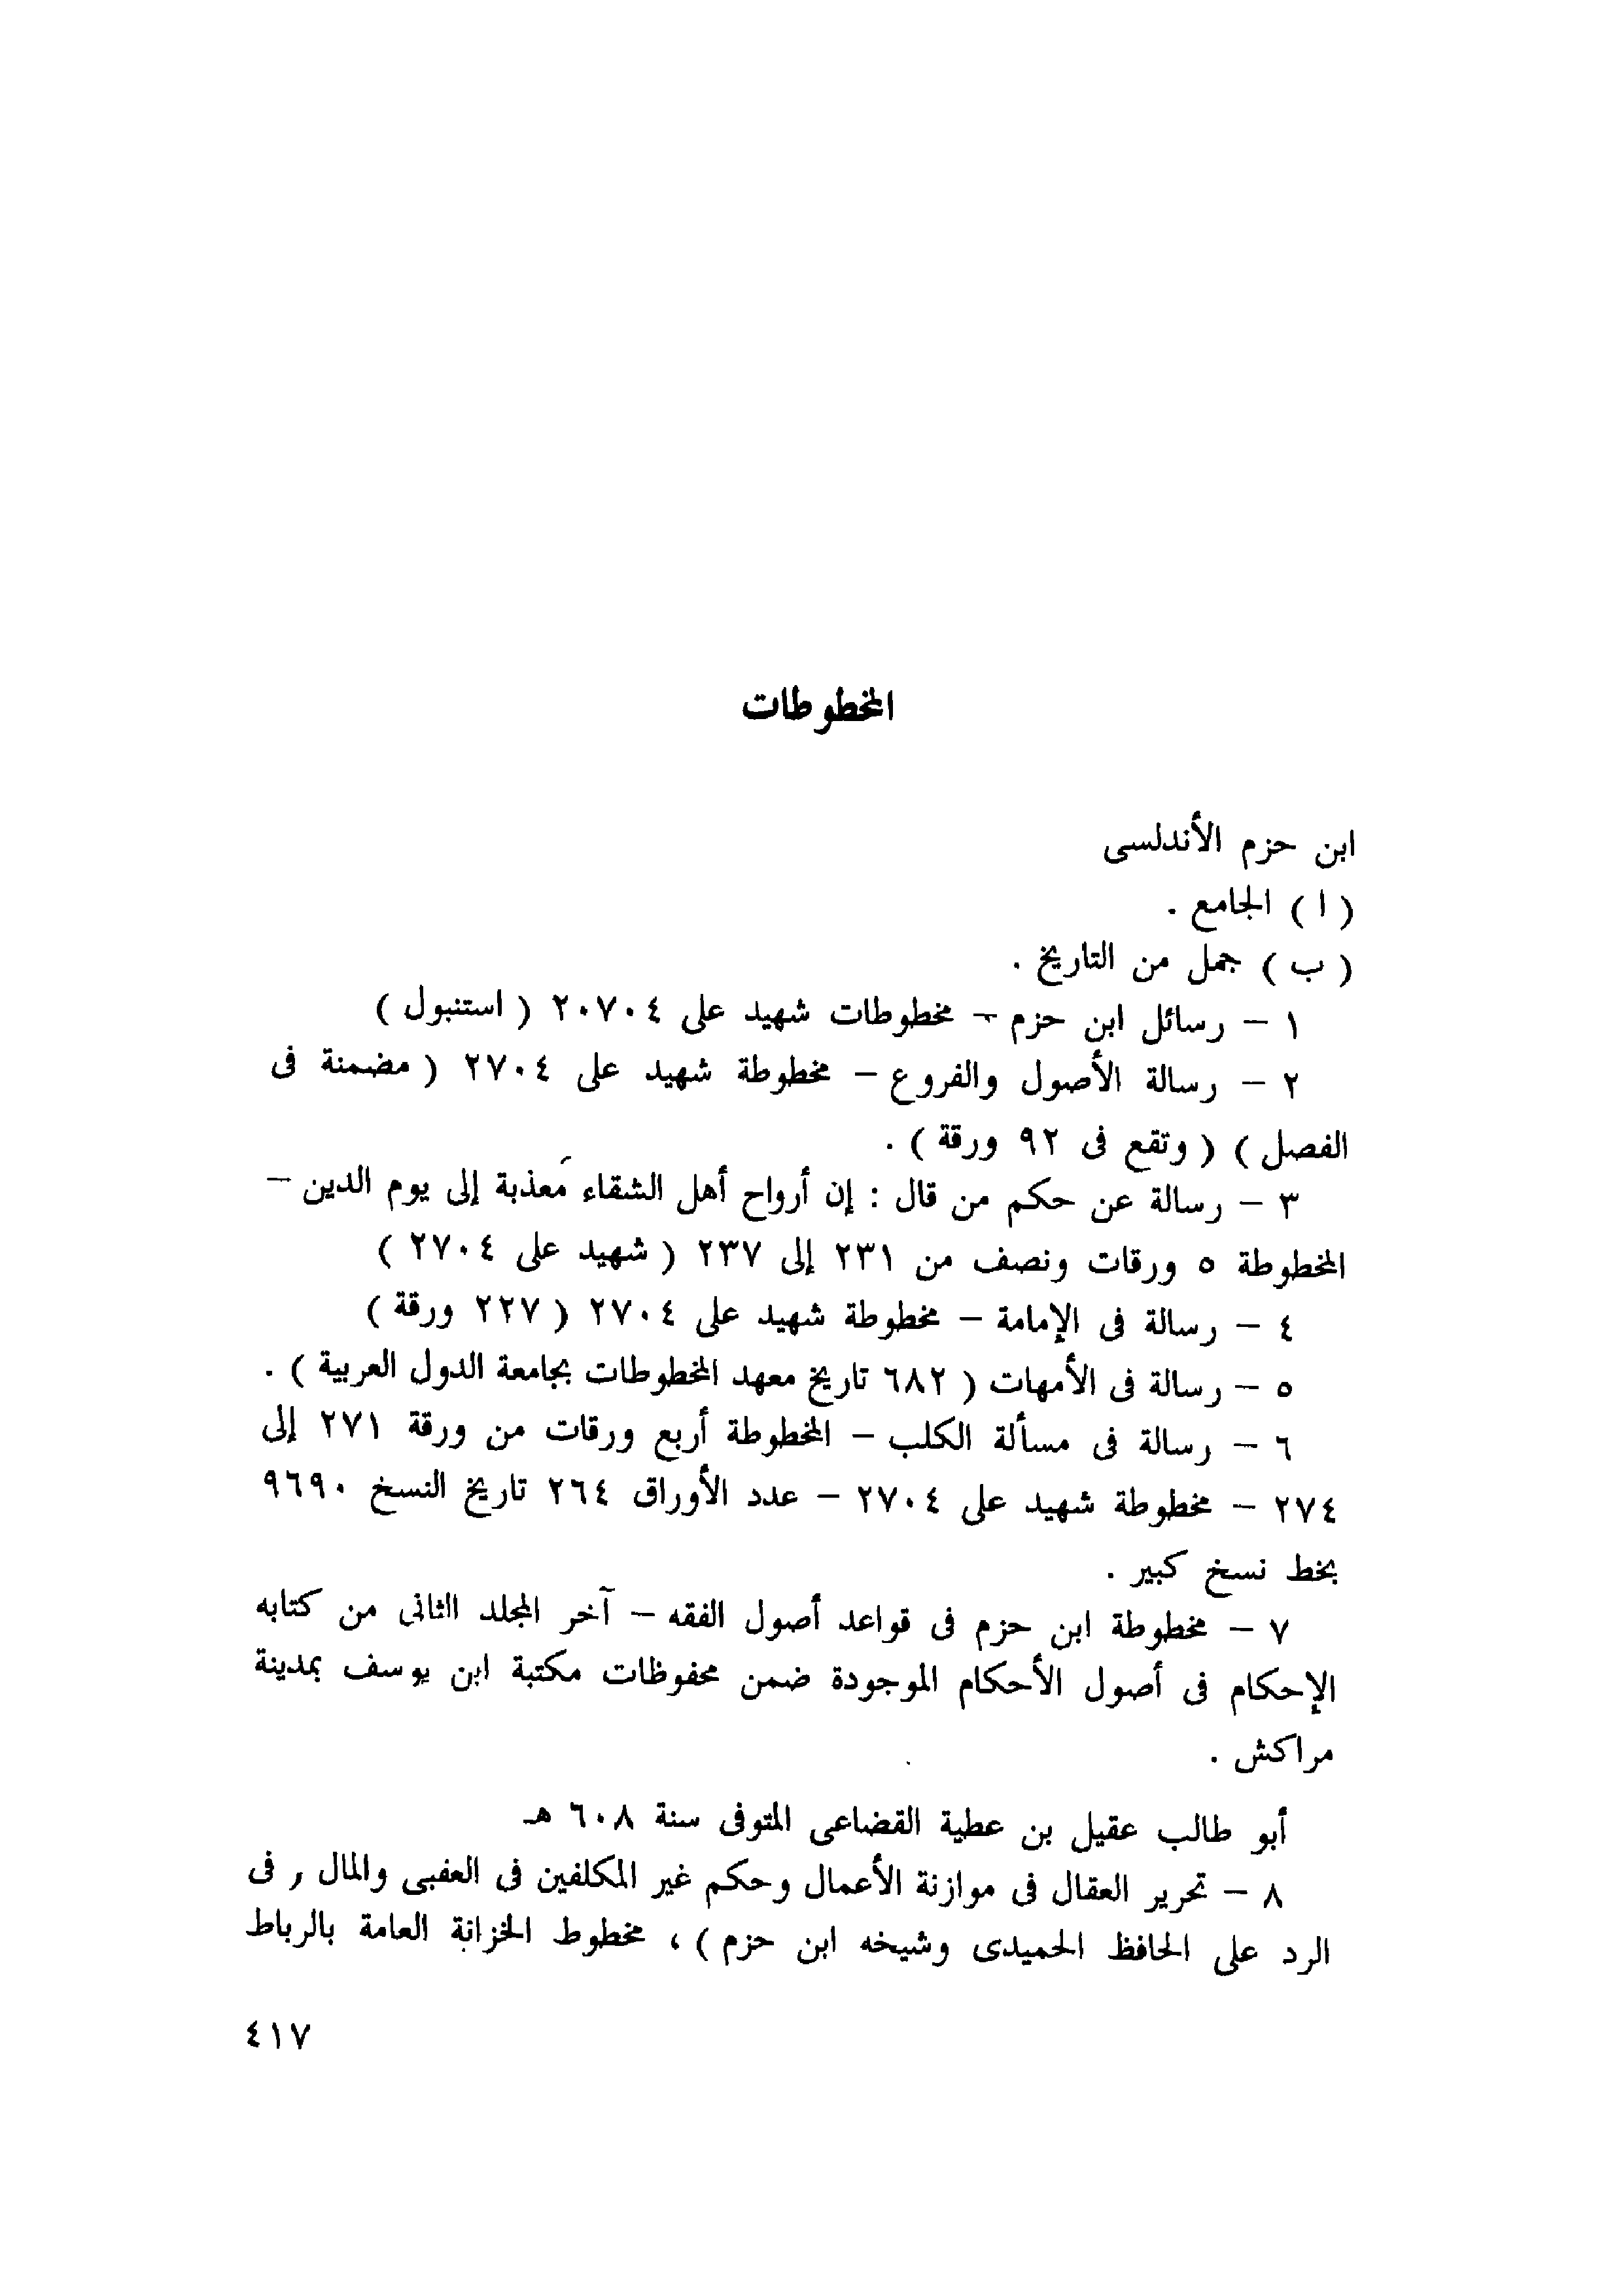 المخطوطات
ابن حزم الأندلسى
( ا ) الجامع .
( ب ) جمل من التاريخ .
١ – رسائل ابن حزم – مخطوطات شهيد على ٢٠٧٠٤ ( استنبول )
٢ – رسالة الأصول والفروع – مخطوطة شهيد على ٢٧٠٤ ( مضمنة فى
الفصل ) ( وتقع فى ٩٢ ورقة ) .
٣ – رسالة عن حكم من قال : إن أرواح أهل الشقاء مَعذبة إلى يوم الدين –
المخطوطة ٥ ورقات ونصف من ٢٣١ إلى ٢٣٧ ( شهيد على ٢٧٠٤ )
٤ – رسالة فى الإمامة – مخطوطة شهيد على ٢٧٠٤ ( ٢٢٧ ورقة )
٥ – رسالة فى الأمهات ( ٦٨٢ تاريخ معهد المخطوطات بجامعة الدول العربية ) .
٦ – رسالة فى مسألة الكلب – المخطوطة أربع ورقات من ورقة ٢٧١ إلى
٢٧٤ – مخطوطة شهيد على ٢٧٠٤ – عدد الأوراق ٢٦٤ تاريخ النسخ ٩٦٩٠
بخط نسخ كبير .
٧ – مخطوطة ابن حزم فى قواعد أصول الفقه – آخر المجلد الثانى من كتابه
الإحكام فى أصول الأحكام الموجودة ضمن محفوظات مكتبة ابن يوسف بمدينة
مراكش .
أبو طالب عقيل بن عطية القضاعى المتوفى سنة ٦٠٨ هـ
٨ – تحرير العقال فى موازنة الأعمال وحكم غير المكلفين فى العفبى والمال , فى
الرد على الحافظ الحميدى وشيخه ابن حزم ) ، مخطوط الخزانة العامة بالرباط
٤١٧